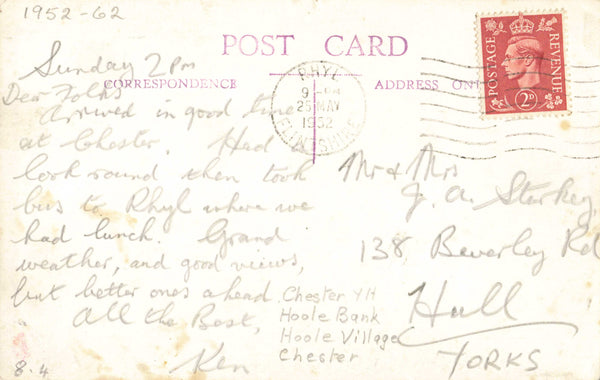 1952-62
POST CARD
CORRESPONDENCE
ADDRESS ONLY
POSTAGE
REVENUE
2D
RHYL
9 - PM
25 MAY
1952
FLINTSHIRE
Sunday 2 pm
Dear Folks
Arrived in good time
at Chester. Had
look round then took
bus to Rhyl where we
had lunch. Grand
weather, and good views,
but better ones ahead.
All the Best,
Ken
8.4
Chester YH
Hoole Bank
Hoole Village
Chester
Mr & Mrs
J. A. Sterkey,
138 Beverley Rd
Hull
YORKS